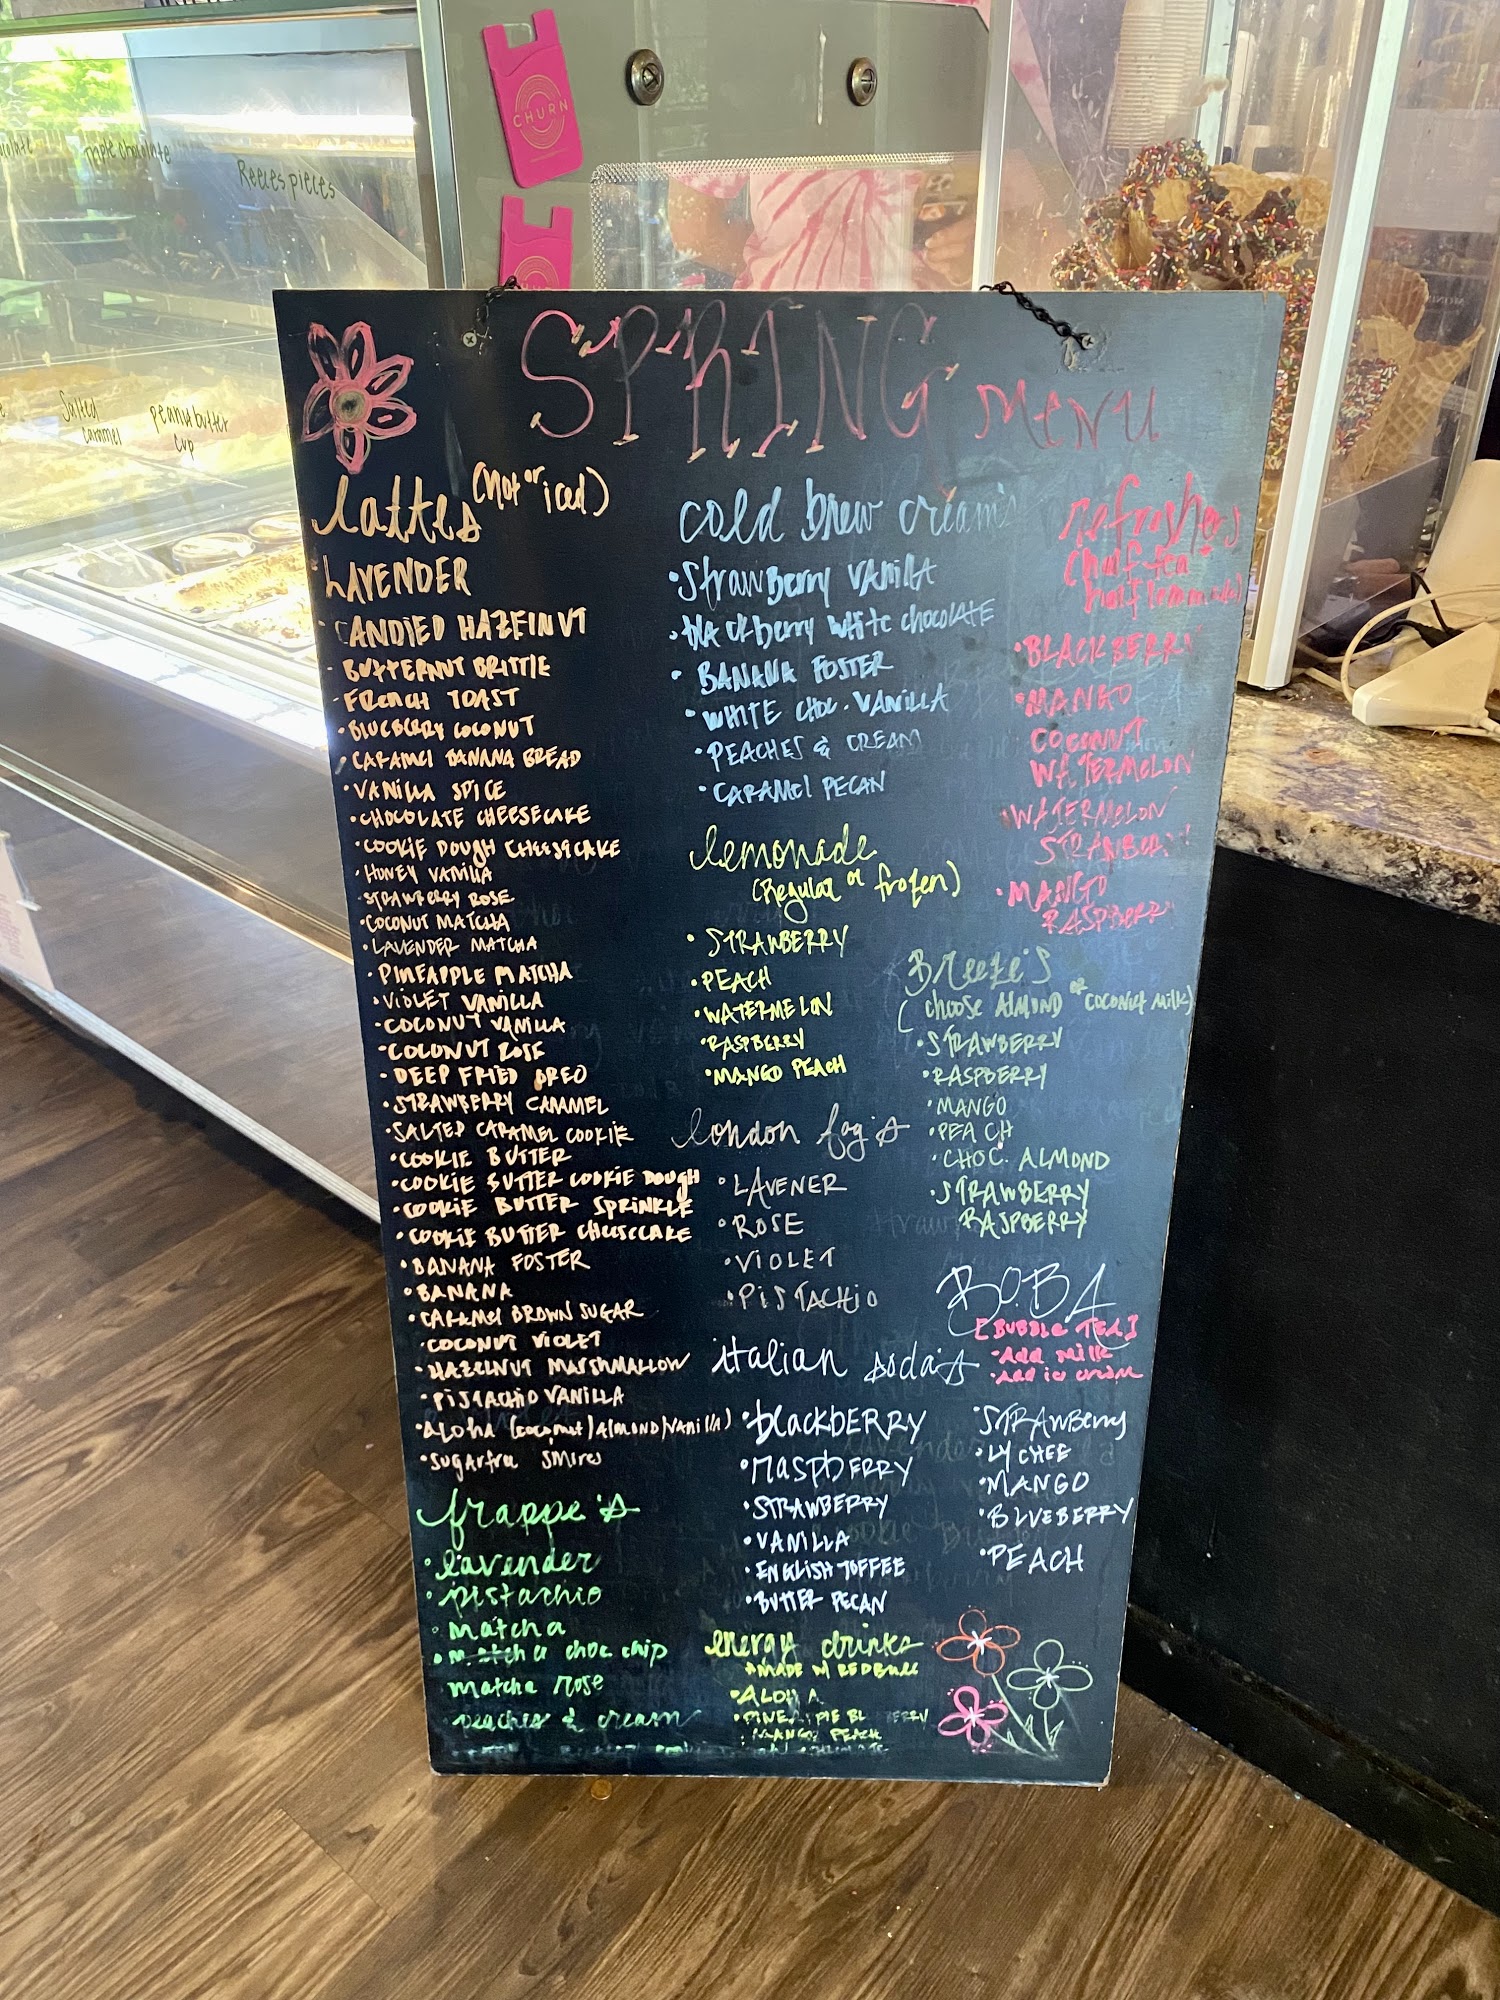 CHURN
triple chocolate
Reeces pieces
Salted
caramel
peanut butter
cup
SPRING MENU
lattes (hot or iced)
LAVENDER
CANDIED HAZELNUT
BUTTERNUT BRITTLE
FRENCH TOAST
BLUEBERRY COCONUT
CARAMEL BANANA BREAD
VANILLA SPICE
CHOCOLATE CHEESECAKE
COOKIE DOUGH CHEESECAKE
HONEY VANILLA
STRAWBERRY ROSE
COCONUT MATCHA
LAVENDER MATCHA
PINEAPPLE MATCHA
VIOLET VANILLA
COCONUT VANILLA
COCONUT ROSE
DEEP FRIED OREO
STRAWBERRY CARAMEL
SALTED CARAMEL COOKIE
COOKIE BUTTER
COOKIE BUTTER COOKIE DOUGH
COOKIE BUTTER SPRINKLE
COOKIE BUTTER CHEESECAKE
BANANA FOSTER
BANANA
CARAMEL BROWN SUGAR
COCONUT VIOLET
HAZELNUT MARSHMALLOW
PISTACHIO VANILLA
ALOHA (coconut/ALMOND/VANILLA)
SUGARfree S'MORES
frappe's
lavender
pistachio
matcha
matcha choc chip
matcha rose
peaches & cream
cold brew cream's
Strawberry VANILLA
blackberry white chocolate
BANANA FOSTER
WHITE CHOC. VANILLA
PEACHES & CREAM
CARAMEL PECAN
lemonade
(Regular or frozen)
STRAWBERRY
PEACH
WATERMELON
RASPBERRY
MANGO PEACH
london fog's
LAVENER
ROSE
VIOLET
PISTACHIO
italian soda's
blackberry
raspberry
STRAWBERRY
VANILLA
ENGLISH TOFFEE
BUTTER PECAN
energy drinks
MADE W REDBULL
ALOHA
MANGO PEACH
refreshers
(half tea
half lemonade)
BLACKBERRY
MANGO
COCONUT
WATERMELON
WATERMELON
STRAWBERRY
MANGO
RASPBERRY
Breeze's
(choose ALMOND or COCONUT MILK)
STRAWBERRY
RASPBERRY
MANGO
PEACH
CHOC. ALMOND
STRAWBERRY
RASPBERRY
BOBA
[BUBBLE TEA]
Add Milk
Add ice cream
STRAWBERRY
LYCHEE
MANGO
BLUEBERRY
PEACH